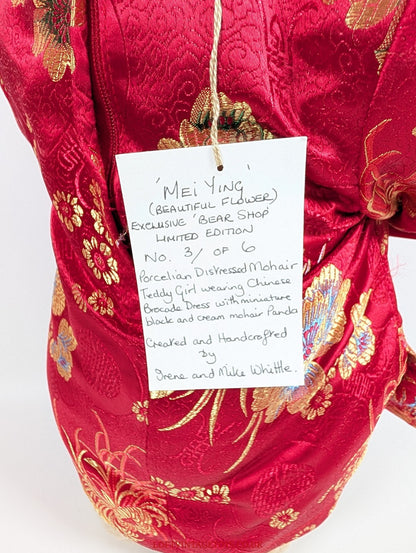 'MEI YING'
(BEAUTIFUL FLOWER)
EXCLUSIVE 'BEAR SHOP'
LIMITED EDITION
NO. 3/ OF 6
Porcelian Distressed Mohair
Teddy Girl wearing Chinese
Brocade Dress with miniature
black and cream mohair Panda
Created and Handcrafted
By
Irene and Mike Whittle.